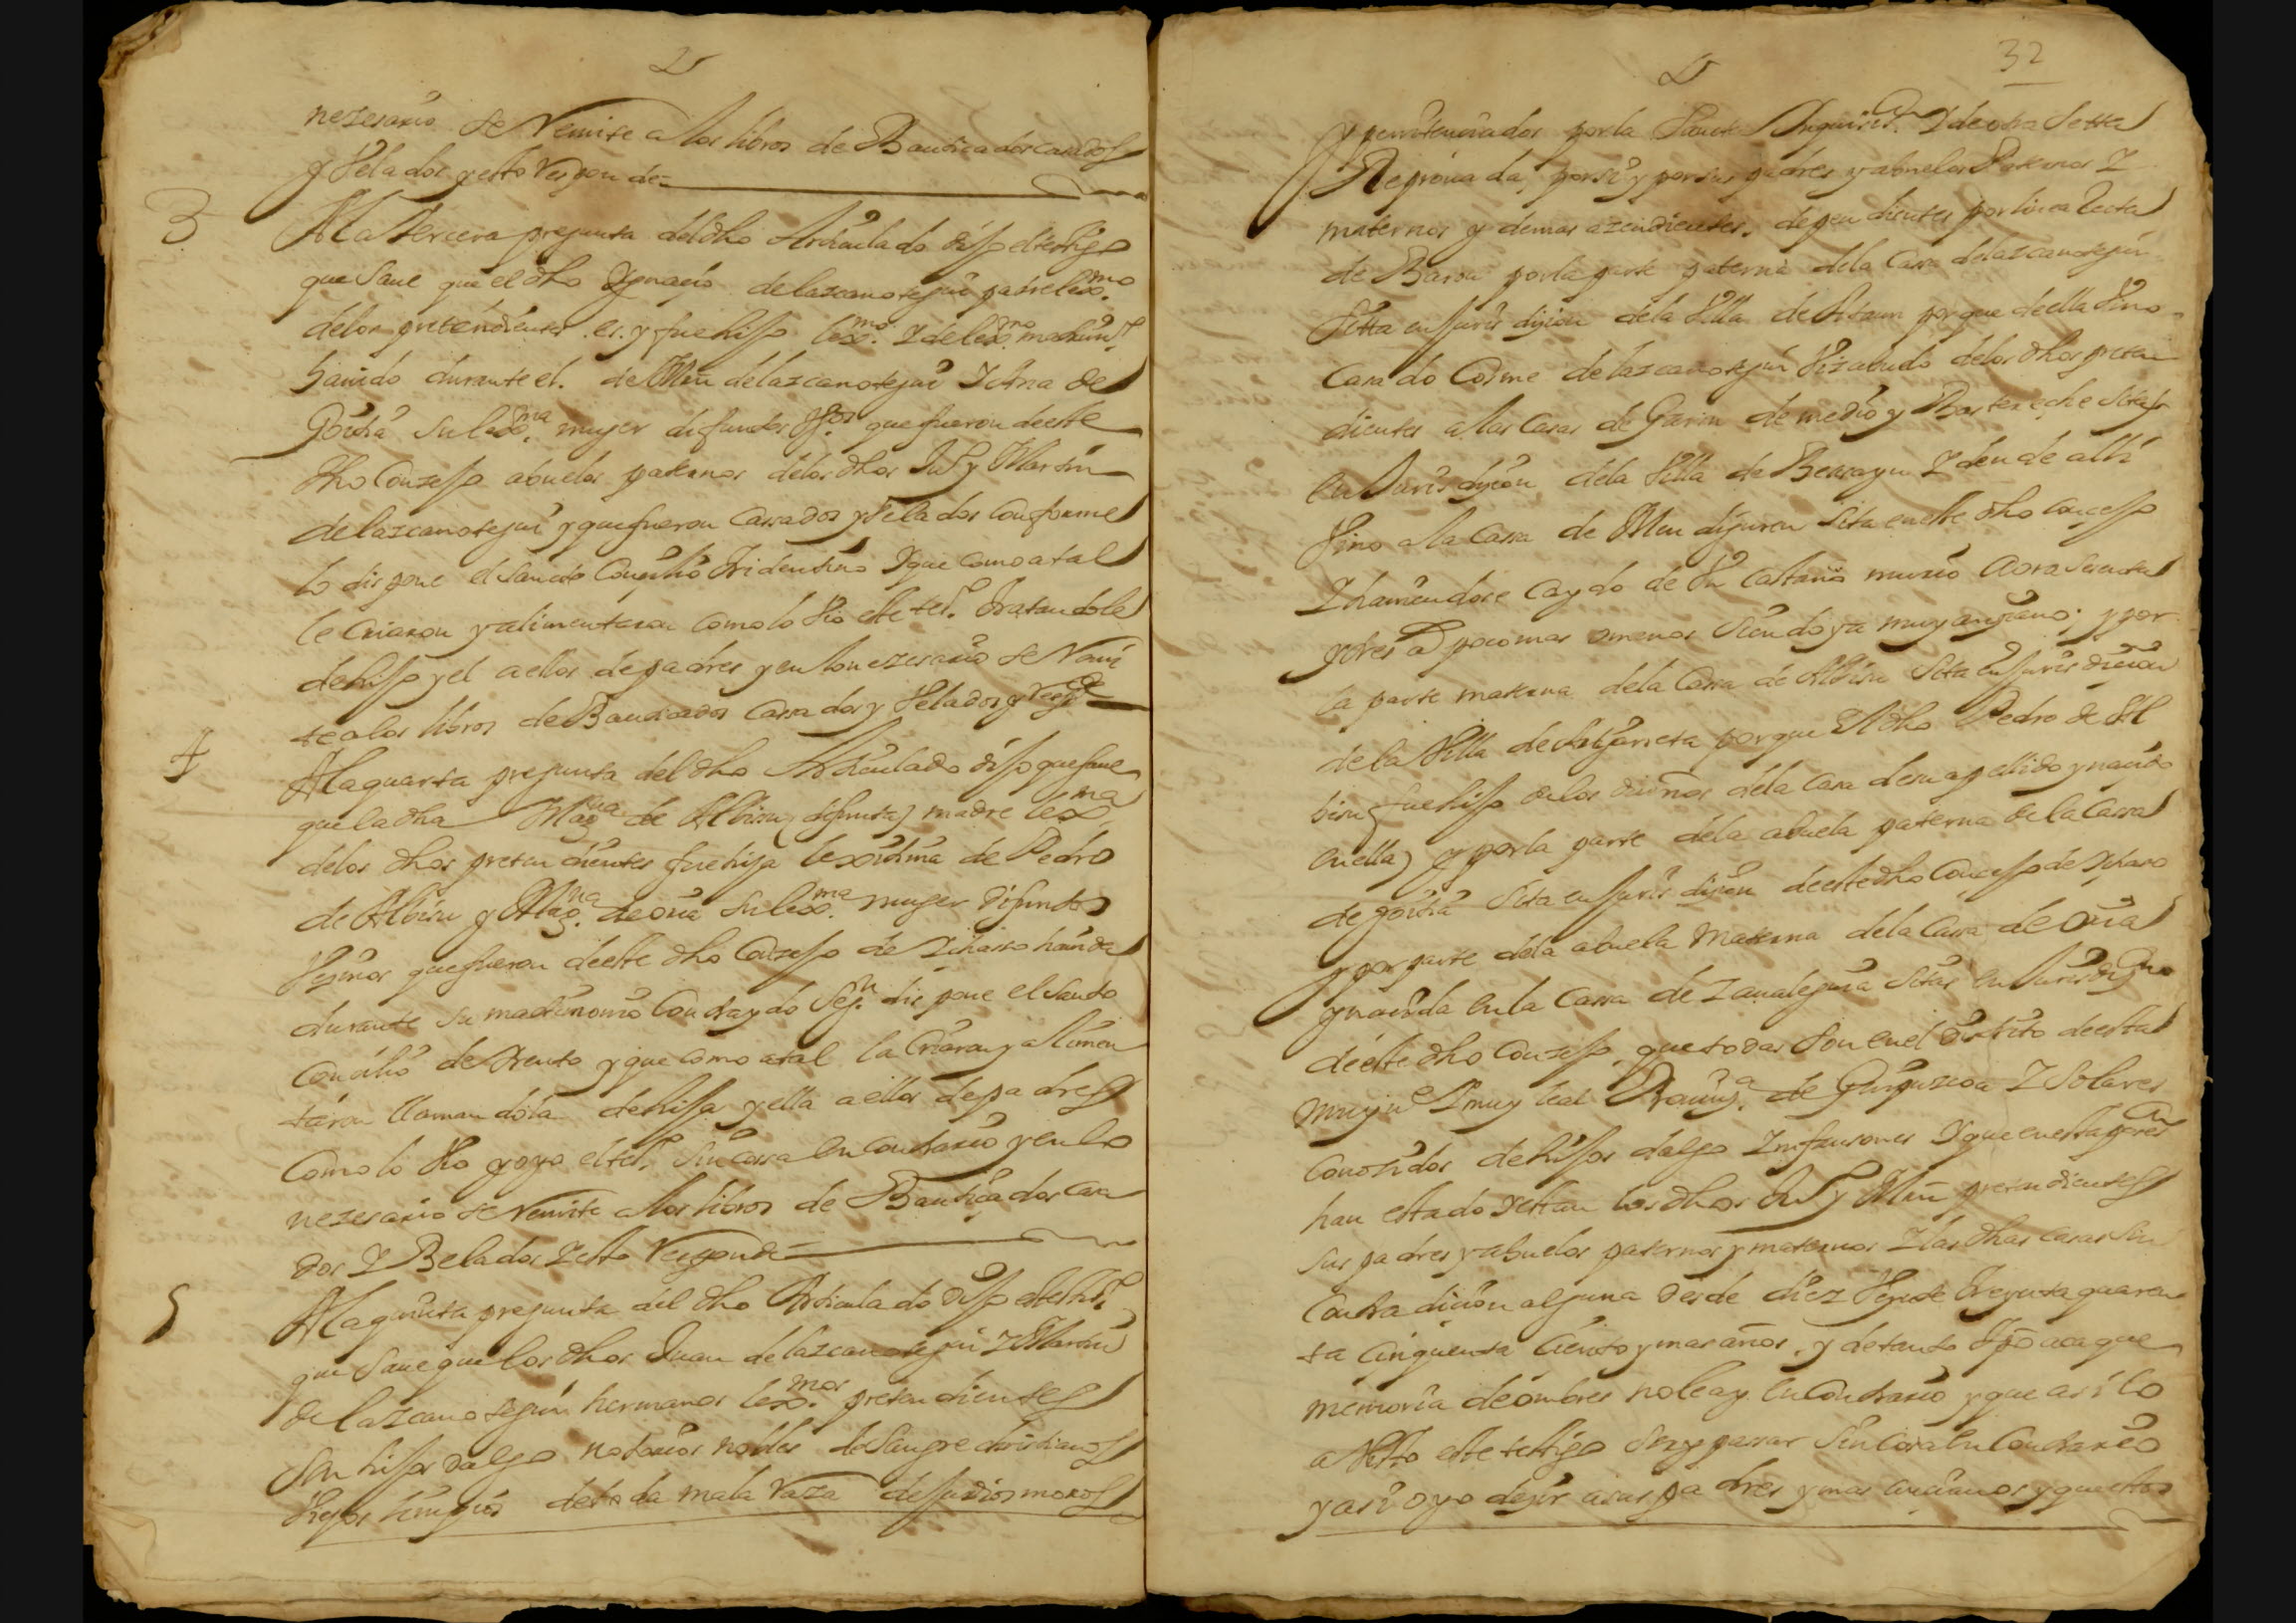 nezesario se Remite a los libros de Bautiçados casados
y Velados y esto Responde
3 A la tercera pregunta del dho Articulado dijo el testigo
que saue que el dho Ygnacio de lazcanotegui padre lexmo.
de los pretendientes es. y fue hijo lexmo. Y de lexmo. matrim.
hauido durante el. de Min de lazcanotegui Y Ana de
Goitia su lexma. muger difuntos Vos. que fueron de este
dho Conzejo abuelos paternos de los dhos Ju y Martin
de lazcanotegui y que fueron Cassados y Velados Conforme
lo dispone el Sancto Concilio Tridentino Y que como a tal
le criaron y alimentaron como lo Vio este tesº. tratandole
de hijo y el a ellos de padres y en lo nezesario se Rami
te a los libros de Bautiçados Cassados y Velados y Respde
4 A la quarta pregunta del dho Articulado dijo que saue
que la dha Magna de Albisu (difunta) madre lexma
de los dhos pretendientes fue hija lexitima de Pedro
de Albisu y Magna. de oria su lexma. muger difuntos
Vezinos que fueron de este dho Conzejo de Ziharso hauida
durante su matrimonio Contraydo Segn. dispone el Santo
Concilio de Trento y que como a tal la Criaron y alimen
taron llamandola de hija y ella a ellos de padres
Como lo Vio y oyo el tesº. sin cossa en contrario y en lo
nezesario se Remite a los libros de Bautiçados Cassa
dos Y Belados Y esto Responde
5 A la quinta pregunta del dho Articulado dijo el testigº
que saue que los dhos Juan de lazcanotegui Y Martin
de lazcanotegui hermanos lexmos. pretendientes
son hijos dalgo notorios nobles de Sangre christianos
Viejos limpios de toda mala Raza de Judios moros
32
y penitenciados por la Sancta Inquisicn. Y de otra Setta
Reprouada, por si y por sus padres y abuelos Paternos Y
maternos y demas azendientes. dependientes por linea Recta
de Baron por la parte paterna de la Cassa de lazcanotegui
sitta en Jurisdizion de la Villa de Ataun porque de ella Vino
Casado Cosme de lazcanotegui Vizabuelo de los dhos preten
dientes a las Casas de Garin de medio y sitas
en Jurisdizion de la Villa de Beasayn Y dende alli
Vino a la Cassa de Mendijuren sita en este dho Concejo
Y hauiendose Caydo de Vn Castaño murio aora sesenta
y tres as poco mas o menos siendo ya muy anziano; y por
la parte materna de la Cassa de Albisu sita en Jurisdizion
de la Villa de porque El dho Pedro de Al
bisu (fue hijo de los dueños de la Casa de su apellido y nacido
en ella) y por la parte de la abuela paterna de la Cassa
de goitia sita en Jurisdizion de este dho Concejo de Yharso
y por parte de la abuela materna de la Cassa de oria
y nacida en la Cassa de Zaualeguia sitas en Jurisdizion
de este dho Conzejo que todas son en el distrito de esta
muy ne Y muy leal Prouinça. de Guipuzcoa Y Solares
Conosidos de hijos dalgo Ynfanzones Y que en esta posesn
han estado Y estan los dhos Ju y Min pretendientes
sus padres y abuelos paternos y maternos Y las dhas casas sin
Contradicion alguna desde diez Veynte treynta quaren
ta Cinquenta Ciento y mas años, y de tanto tpo aca que
memoria de ombres no le ay en Contrario y que asi lo
a Visto este testigo ser y passar sin cosa en Contrario
y asi oyo dezir a sus padres y mas ancianos y que ellos